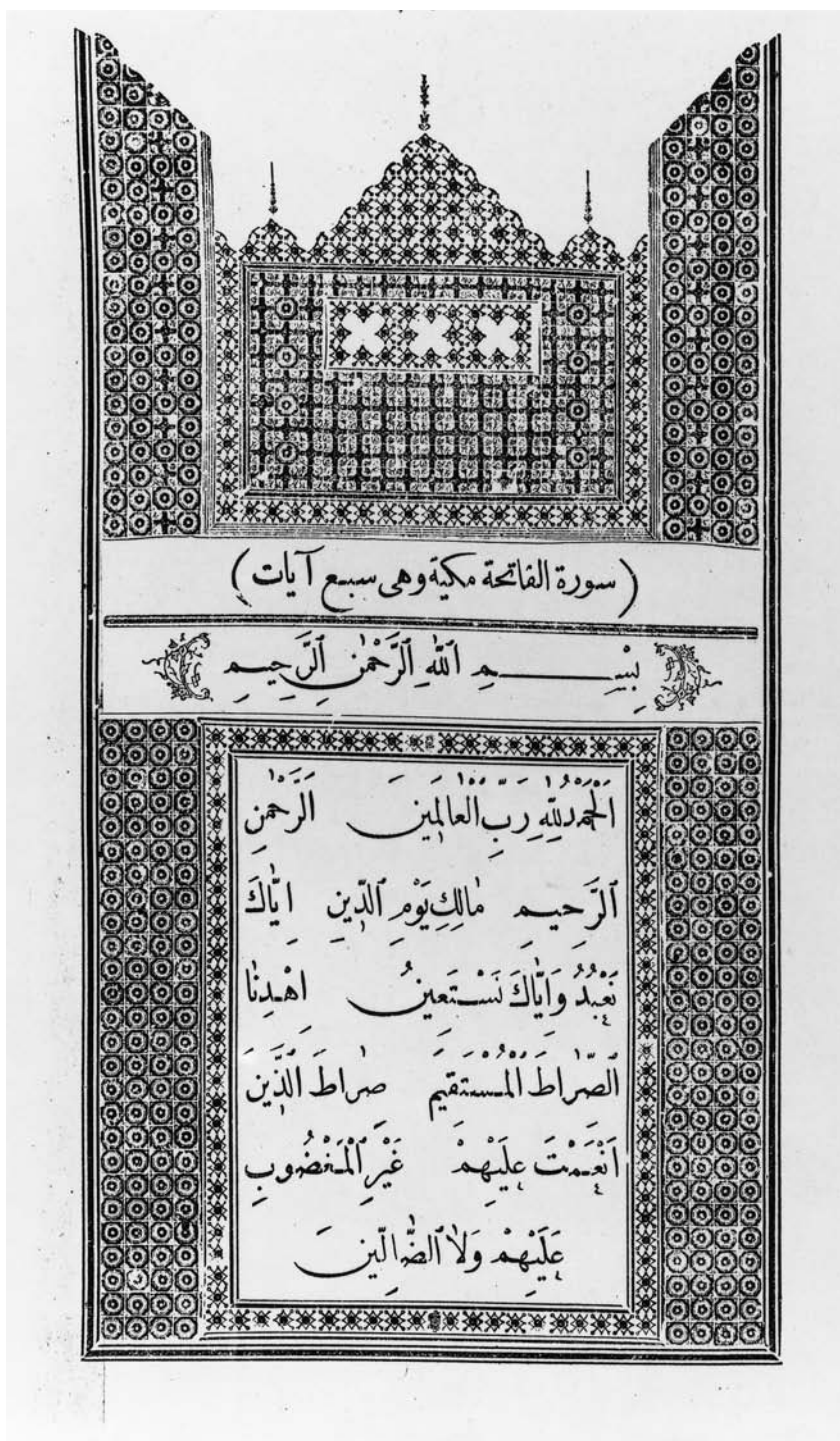 (سورة الفاتحة مكية وهى سبع آيات)
بِسْـــــمِ ٱللّٰهِ ٱلرَّحْمٰنِ ٱلرَّحِيمِ
اَلْحَمْدُ لِلّٰهِ رَبِّ الْعَالَمِينَ اَلرَّحْمٰنِ
ٱلرَّحِيمِ مَالِكِ يَوْمِ ٱلدِّينِ اِيَّاكَ
نَعْبُدُ وَاِيَّاكَ نَسْتَعِينُ اِهْدِنَا
ٱلصِّرَاطَ ٱلْمُسْتَقِيمَ صِرَاطَ ٱلَّذِينَ
اَنْعَمْتَ عَلَيْهِمْ غَيْرِ ٱلْمَغْضُوبِ
عَلَيْهِمْ وَلَا ٱلضَّالِّينَ